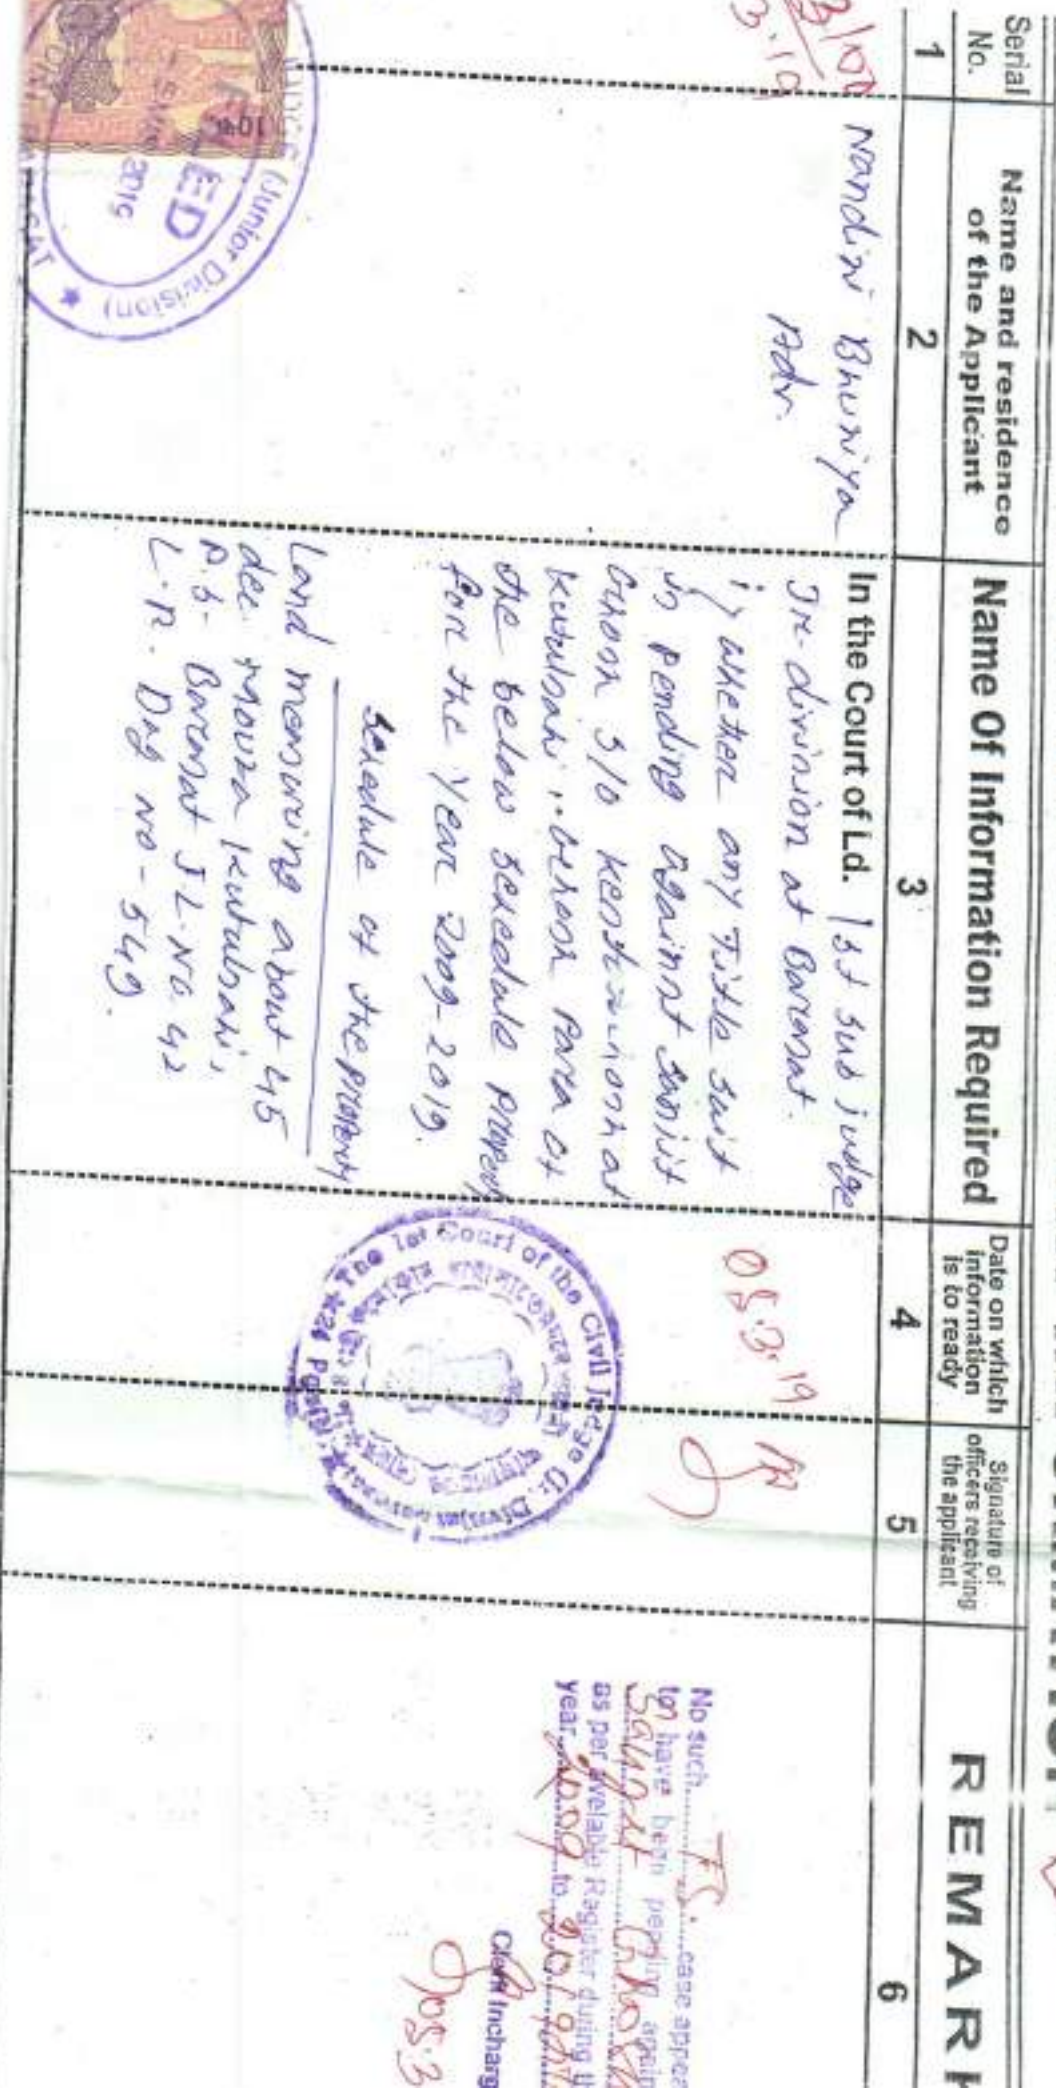 Serial
No.
Name and residence
of the Applicant
Name Of Information Required
Date on which
information
is to ready
Signature of
officers receiving
the applicant
REMARK
1
2
3
4
5
6
Nandini Bhuniya
Adv.
In the Court of Ld. 1st sub judge
Jr-division at Barasat.
whether any Title suit
is pending against Sanjit
Ghosh S/O
Kutulsahi, Ghosh Para at
the below scheedule property
for the year 2009-2019.
Schedule of the property
Land measuring about 45
dec. Mouza Kutulsahi,
P.S- Barasat J.L-No. 42
L.R. Dag No- 549.
05.3.19
The 1st Court of the Civil Judge (Jr. Division)
No such T.S. case appea
to have been pending again
Sanjit Ghosh
as per avelable Ragister during th
year 2009 to 2019
Clerk Incharg
05.3
JUDGE (Junior Division)
2019